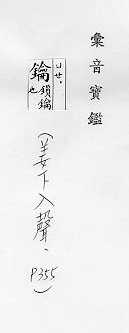 彙音寶鑑
鑰 鎖鑰也
(姜下入聲、P355)